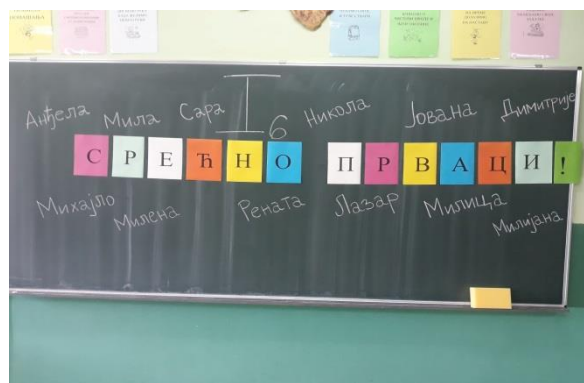 I6
Анђела Мила Сара Никола Јована Димитрије
СРЕЋНО ПРВАЦИ!
Михајло Милена Рената Лазар Милица Милијана